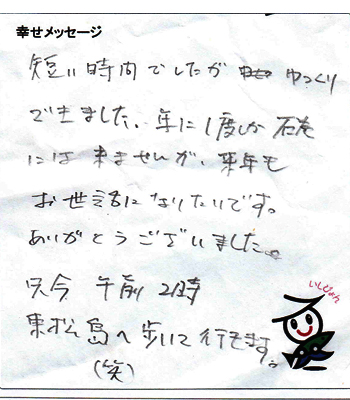 幸せメッセージ
短い時間でしたが ゆっくり
できました、年に1度しか石巻
には来ませんが、来年も
お世話になりたいです。
ありがとうございました。
只今 午前2時
東松島へ歩いて行きます。
(笑)
いしぴょん